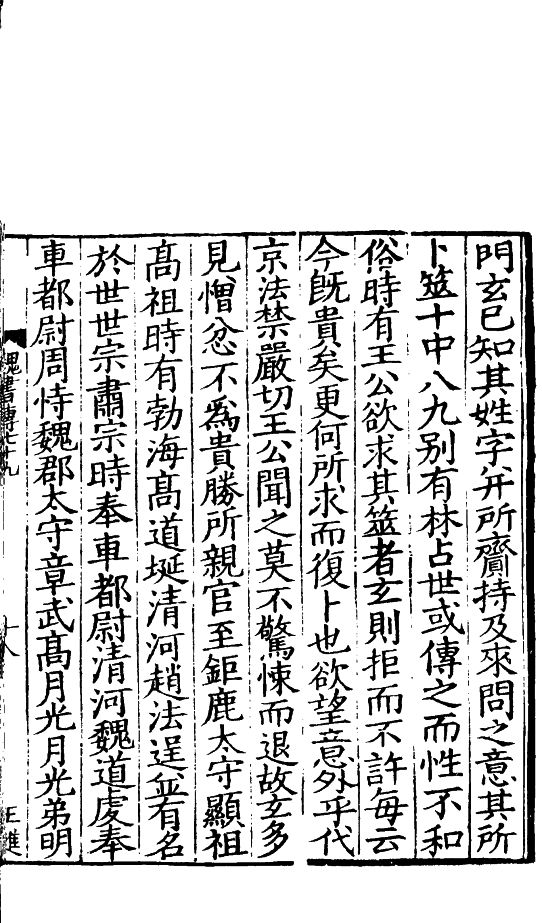 門玄已知其姓字并所齎持及來問之意其所
卜筮十中八九別有林占世或傳之而性不和
俗時有王公欲求其筮者玄則拒而不許每云
今旣貴矣更何所求而復卜也欲望意外乎代
京法禁嚴切王公聞之莫不驚悚而退故玄多
見憎忿不爲貴勝所親官至鉅鹿太守顯祖
髙祖時有勃海髙道埏清河趙法逞並有名
於世世宗肅宗時奉車都尉清河魏道虔奉
車都尉周恃魏郡太守章武髙月光月光弟明
魏書傳七十九
十八
王進